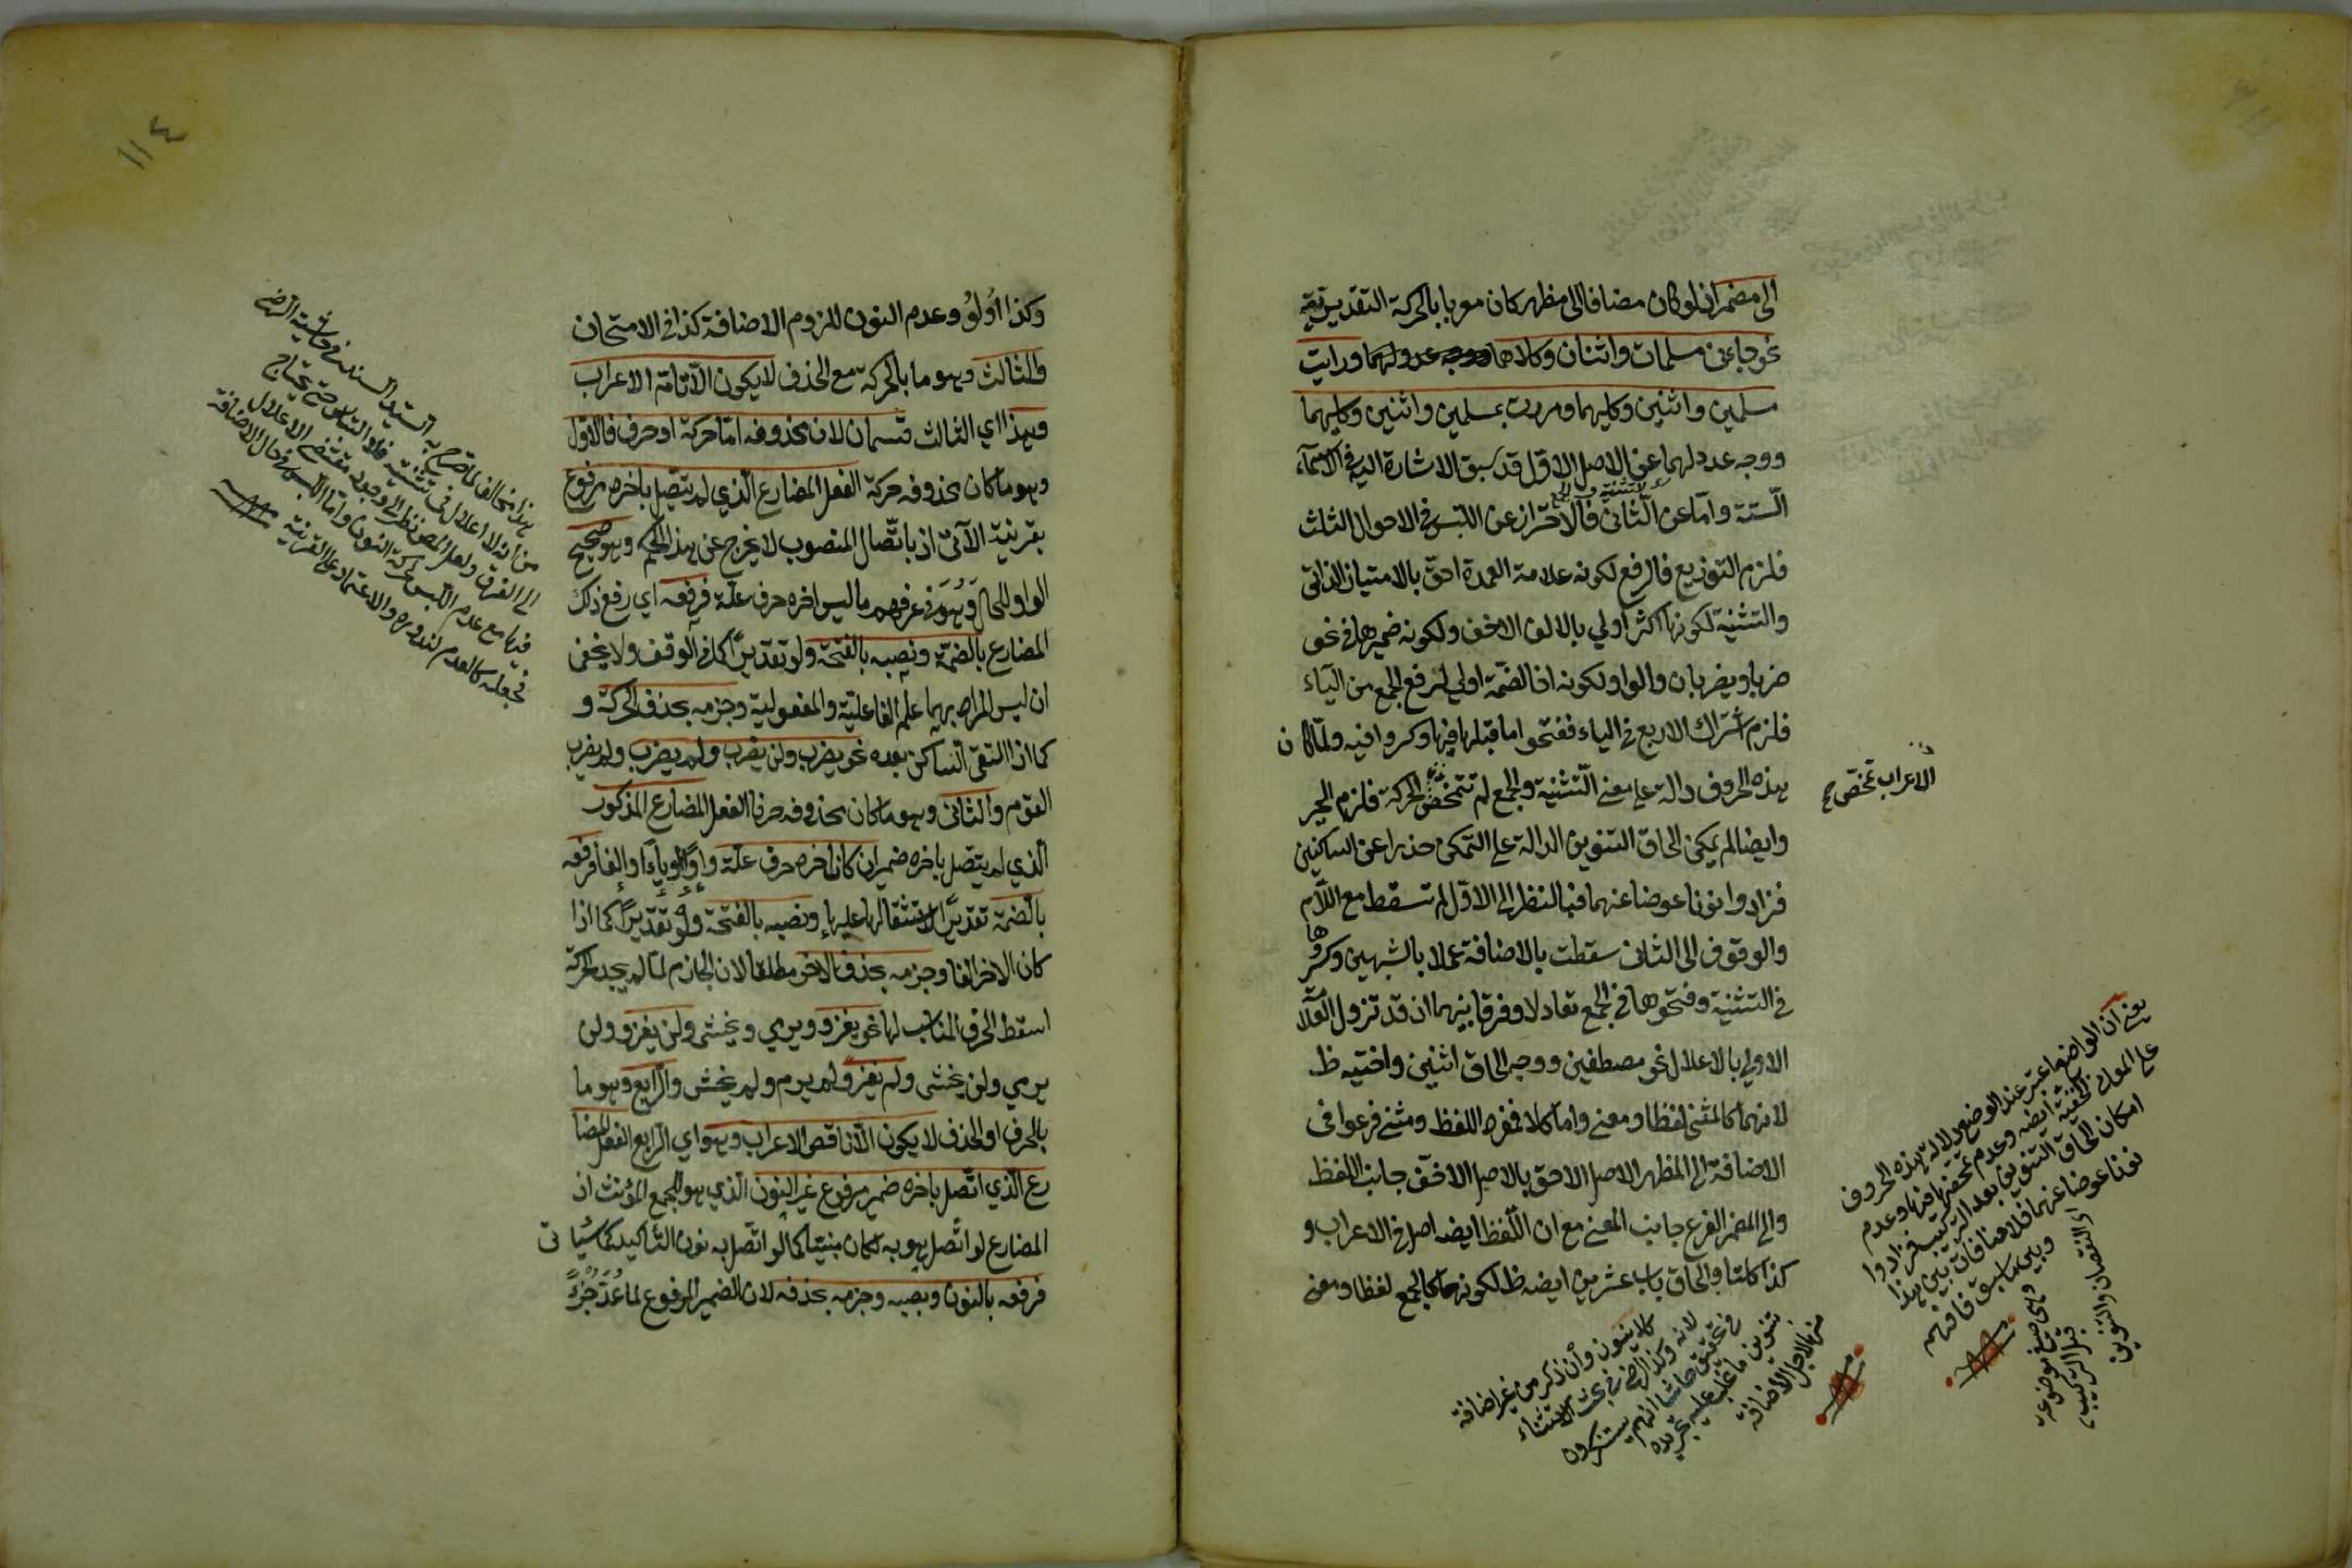 الى مضمر اذ لو كان مضافا الى مظهر كان معربا بالحركة التقديرية
نحو جاءني مسلمان واثنان وكلاهما ورايت
مسلمين واثنين وكليهما ومررت بمسلمين واثنين وكليهما
ووجه عدولهما عن الاصل الاول قد سبق الاشارة اليه في الاسماء
الستة واما عن الثاني فالاحتراز عن اللبس في الاحوال الثلث
فلزم التوزيع فالرفع لكونه علامة العمدة احق بالامتياز الذاتي
والتثنية لكونها اكثر اولي بالالف الاخف ولكونه ضميرها في نحو
ضربا ويضربان والواو لكونه اخا الضمة اولي لرفع الجمع من الياء
فلزم اشتراك الاربع في الياء ففتحوا ما قبلها فيها وكسروا فيه ولما كان
هذه الحروف دالة على معنى التثنية والجمع لم تتمحض الحركة فلزم الجبر
وايضا لم يمكن الحاق التنوين الدالة على التمكن حذرا عن الساكنين
فزادوا نونا عوضا عنهما فبالنظر الى الاول لم تسقط مع اللام
والوقوف الى الثاني سقطت بالاضافة عملا بالشبهين وكسروها
في التثنية وفتحوها في الجمع تعادلا وفرقا بينهما اذ قد تزول
الاولي بالاعلال نحو مصطفين ووجه الحاق اثنين واختيه ظ
لانهما كالمثنى لفظا ومعنى واما كلا فمفرد اللفظ ومثنى فرعوا في
الاضافة الى المظهر الاصل الاحق بالاصل الاخف جانب اللفظ
والى المضمر الفرع جانب المعنى مع ان اللفظ ايضه اصل في الاعراب و
كذا كلتا والحاق باب عشرين ايضه ظ لكونها كالجمع لفظا ومعنى
الاعراب تمحض
يعني ان الواضع اعتبر عند الوضع دلالة هذه الحروف
على المعاني وعدم
امكان الحاق التنوين بعد التركيب فزادوا
نونا عوضا عنهما فلا منافات بين هذا
وبين ما سبق فافهم
كلا بنون وان ذكر من غير اضافة
لانه وكذا في بحث الاستثناء
من الاجل الاضافة
١١٤
وكذا اولو وعدم النون للزوم الاضافة كذا في الامتحان
والثالث وهو ما بالحركة مع الحذف لا يكون الا تامة الاعراب
وهذا اي الثالث قسمان لان محذوفه اما حركة او حرف فالاول
وهو ما كان محذوفه حركة الفعل المضارع الذي لم يتصل باخره مرفوع
بقرينة الآتي اذ باتصال المنصوب لا يخرج عن هذا الحكم وهو صحيح
الواو للحال وهو في عرفهم ما ليس اخره حرف علة فرفعه اي رفع ذلك
المضارع بالضمة ونصبه بالفتحة ولو تقديرا كما في الوقف ولا يخفى
ان ليس المراد بهما علم الفاعلية والمفعولية وجزمه بحذف الحركة و
كما اذا التقى الساكن بعده نحو يضرب ولن يضرب ولم يضرب ولم يضرب
القوم والثاني وهو ما كان محذوفه حرفا الفعل المضارع المذكور
الذي لم يتصل باخره ضمير ان كان اخره حرف علة واوا او ياء او الفا فرفعه
بالضمة تقديرا لاستثقالها عليها ونصبه بالفتحة ولو تقديرا كما اذا
كان الاخر الفا وجزمه بحذف الاخر مطلقا لان الجازم لما لم يجد الحركة
اسقط الحرف المناسب لها نحو يغزو ويرمي ويخشى ولن يغزو ولن
يرمي ولن يخشى ولم يغز ولم يرم ولم يخش والرابع وهو ما
بالحرف او الحذف لا يكون الا ناقص الاعراب وهو اي الرابع الفعل المضا
رع الذي اتصل باخره ضمير مرفوع غير النون الذي هو للجمع المؤنث اذ
المضارع لو اتصل هو به لكان مبنيا كما لو اتصل به نون التاكيد كما سيأتي
فرفعه بالنون ونصبه وجزمه بحذفه لان الضمير المرفوع لما عد جزءً
من ان لا اعلال في تثنية
فيها مع عدم اللبس حركة النون واما اللبس في حال الاضافة
فجعله كالعدم لندوره والاعتماد على القرينة